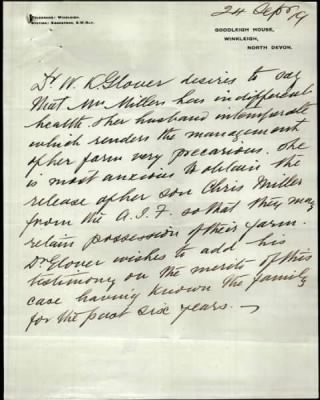 Telephone: Winkleigh.
Station: Eggesford, S.W.Rly.
24 Sep 19
GOODLEIGH HOUSE,
WINKLEIGH,
NORTH DEVON.
Dr. W. K Glover desires to say
that Mrs Millers has indifferent
health & her husband intemperate
which renders the management
of her farm very precarious. She
is most anxious to obtain the
release of her son Chris Miller
from the A.I.F. so that they may
retain possession of their farm.
Dr Glover wishes to add his
testimony on the merits of this
case having known the family
for the past six years.